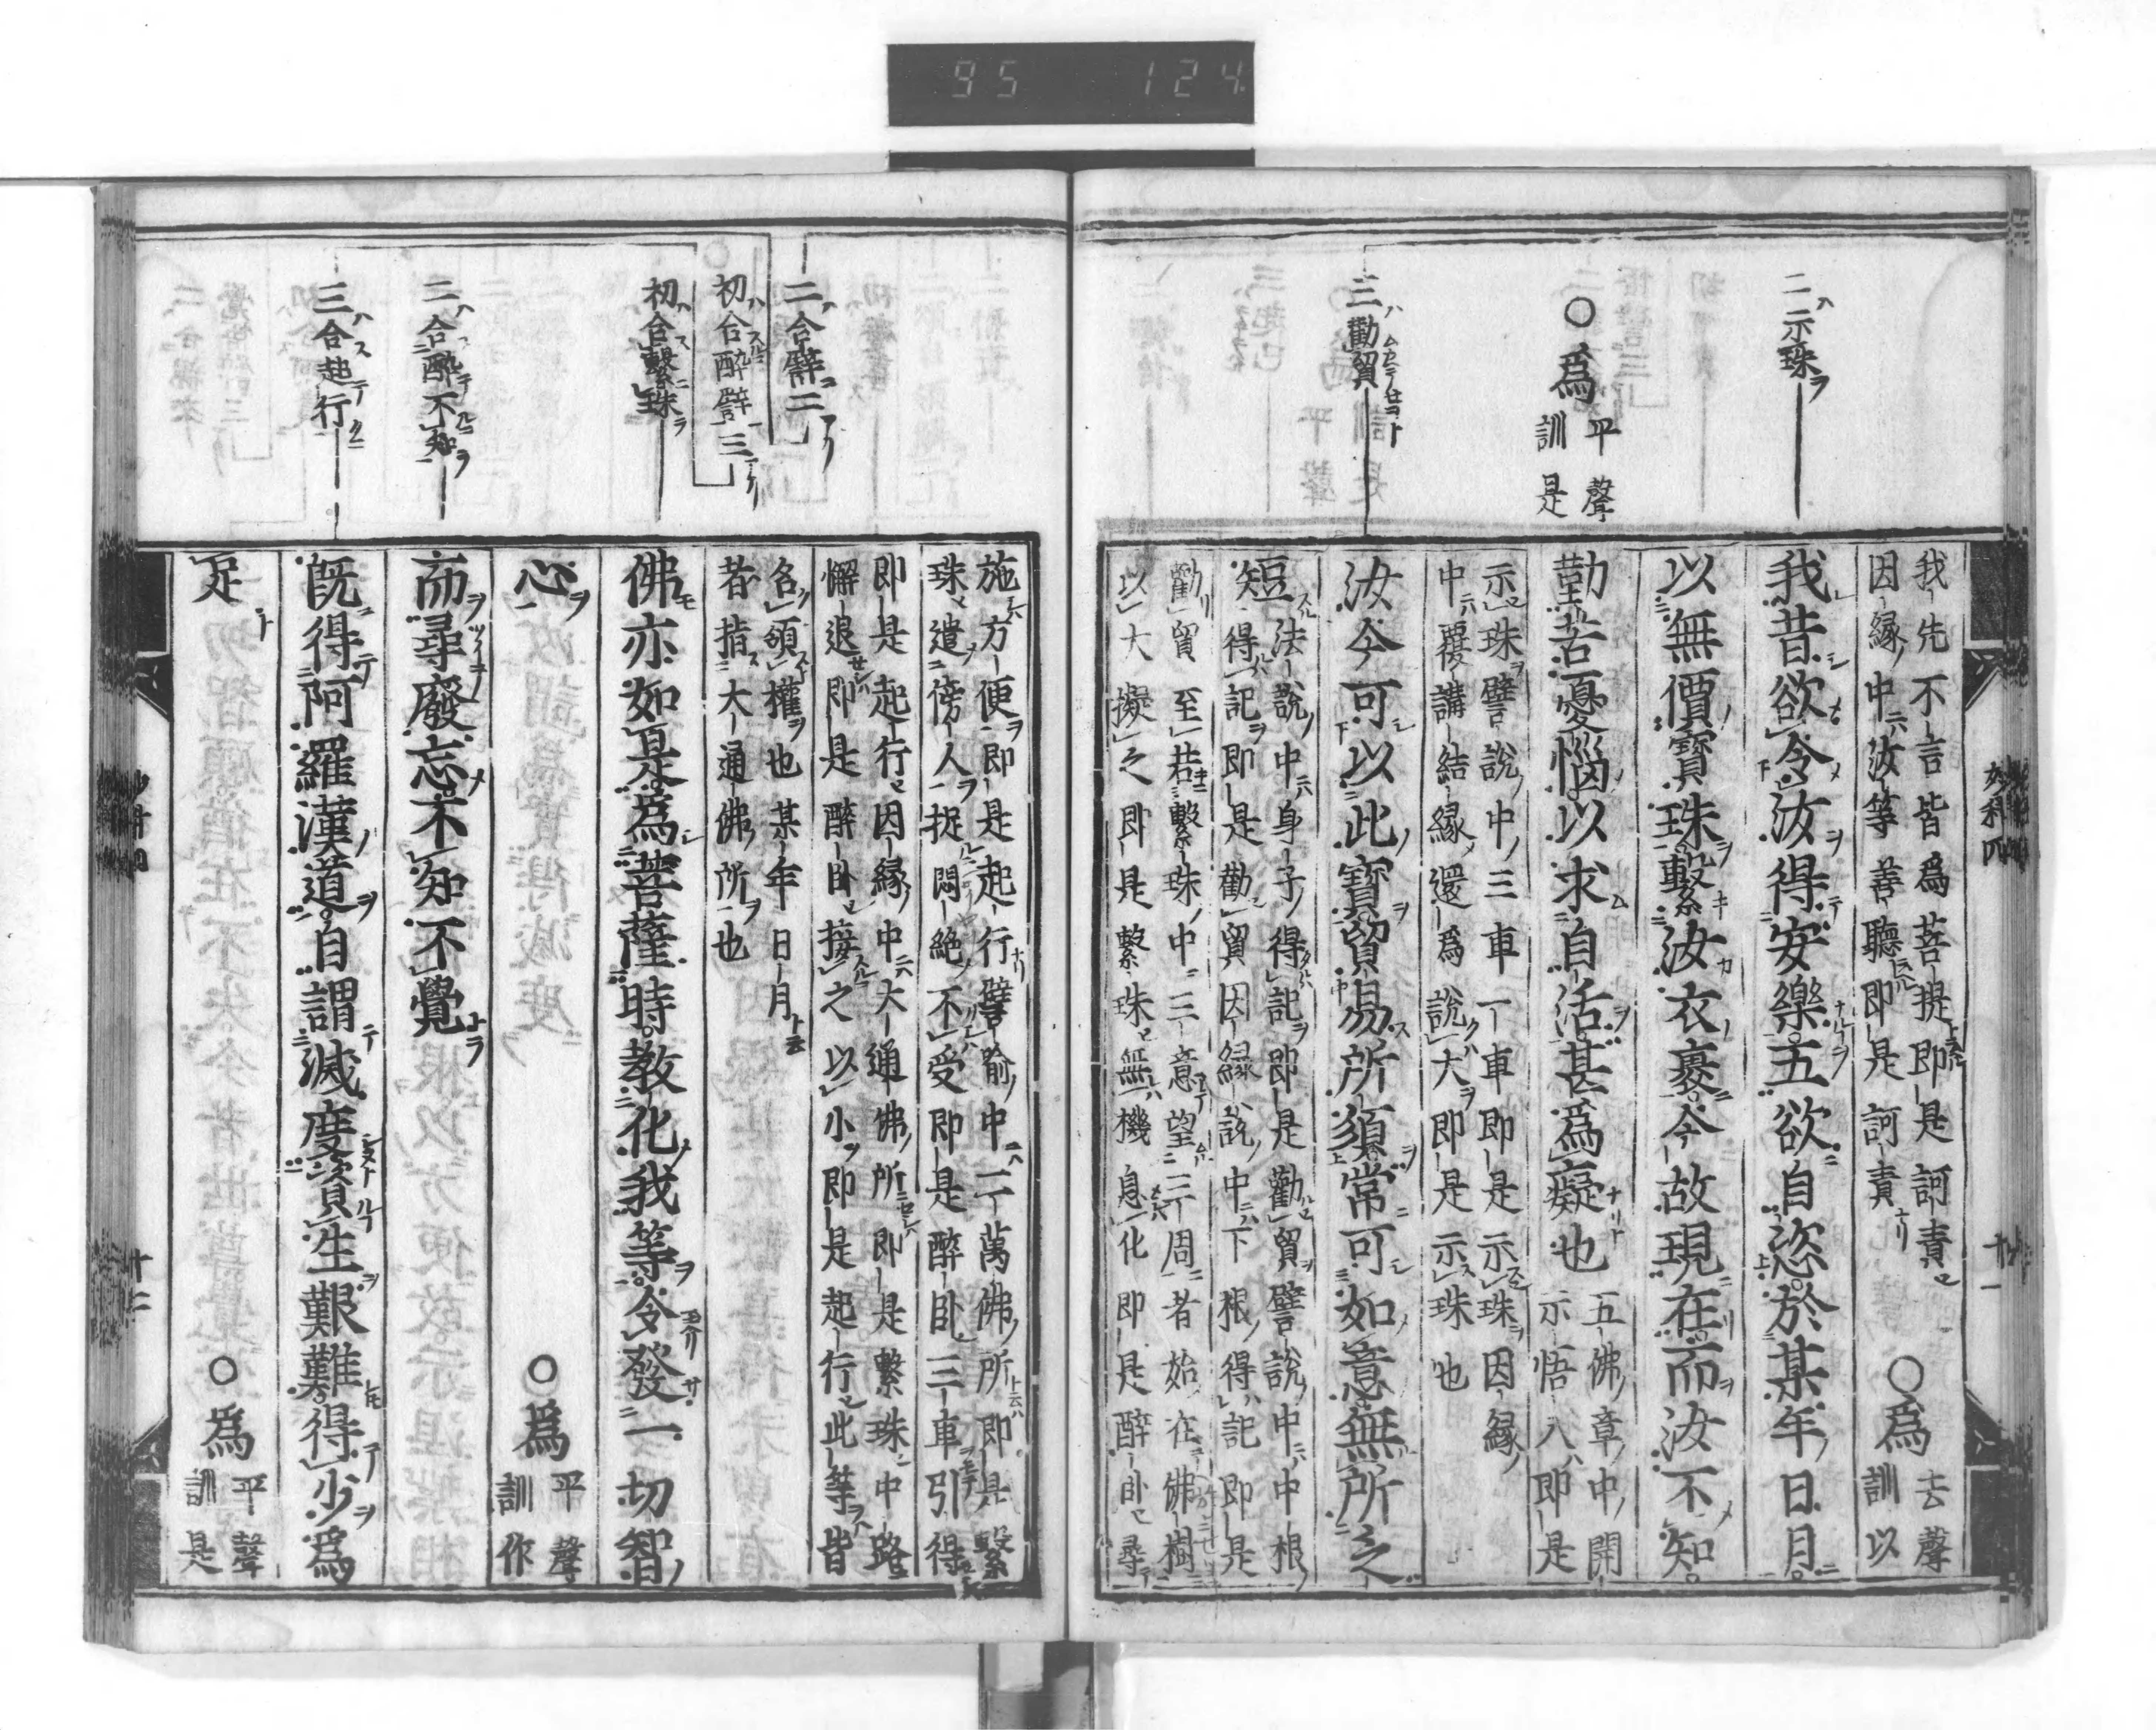 95 124
二示珠
○爲 平聲訓是
三勸貿
我先不言皆爲菩提即是訶責
因緣中汝等善聽即是訶責
○爲 去聲訓以
我昔欲令汝得安樂五欲自恣於某年日月
以無價寶珠繫汝衣裏今故現在而汝不知
勤苦憂惱以求自活甚爲癡也
五佛章中開
示悟入即是
示珠譬說中三車一車即是示珠因緣
中覆講結緣還爲說大即是示珠也
汝今可以此寶貿易所須常可如意無所乏
短法說中身子得記即是勸貿譬說中中根
得記即是勸貿因緣說中下根得記即是
勸貿至若繫珠中三意望三周者始在佛樹
以大擬之即是繫珠無機息化即是醉臥尋
妙科四 十一
二合譬二
初合醉譬三
初合繫珠
二合醉不知
三合起行
施方便即是起行譬喻中二萬佛所即是繫
珠遣傍人捉悶絕不受即是醉臥三車引得
即是起行因緣中大通佛所即是繫珠中路
懈退即是醉臥接之以小即是起行此等皆
名領權也某年日月
者指大通佛所也
佛亦如是爲菩薩時教化我等令發一切智
心
○爲 平聲訓作
而尋廢忘不知不覺
既得阿羅漢道自謂滅度資生艱難得少爲
足
○爲 平聲訓是
十二